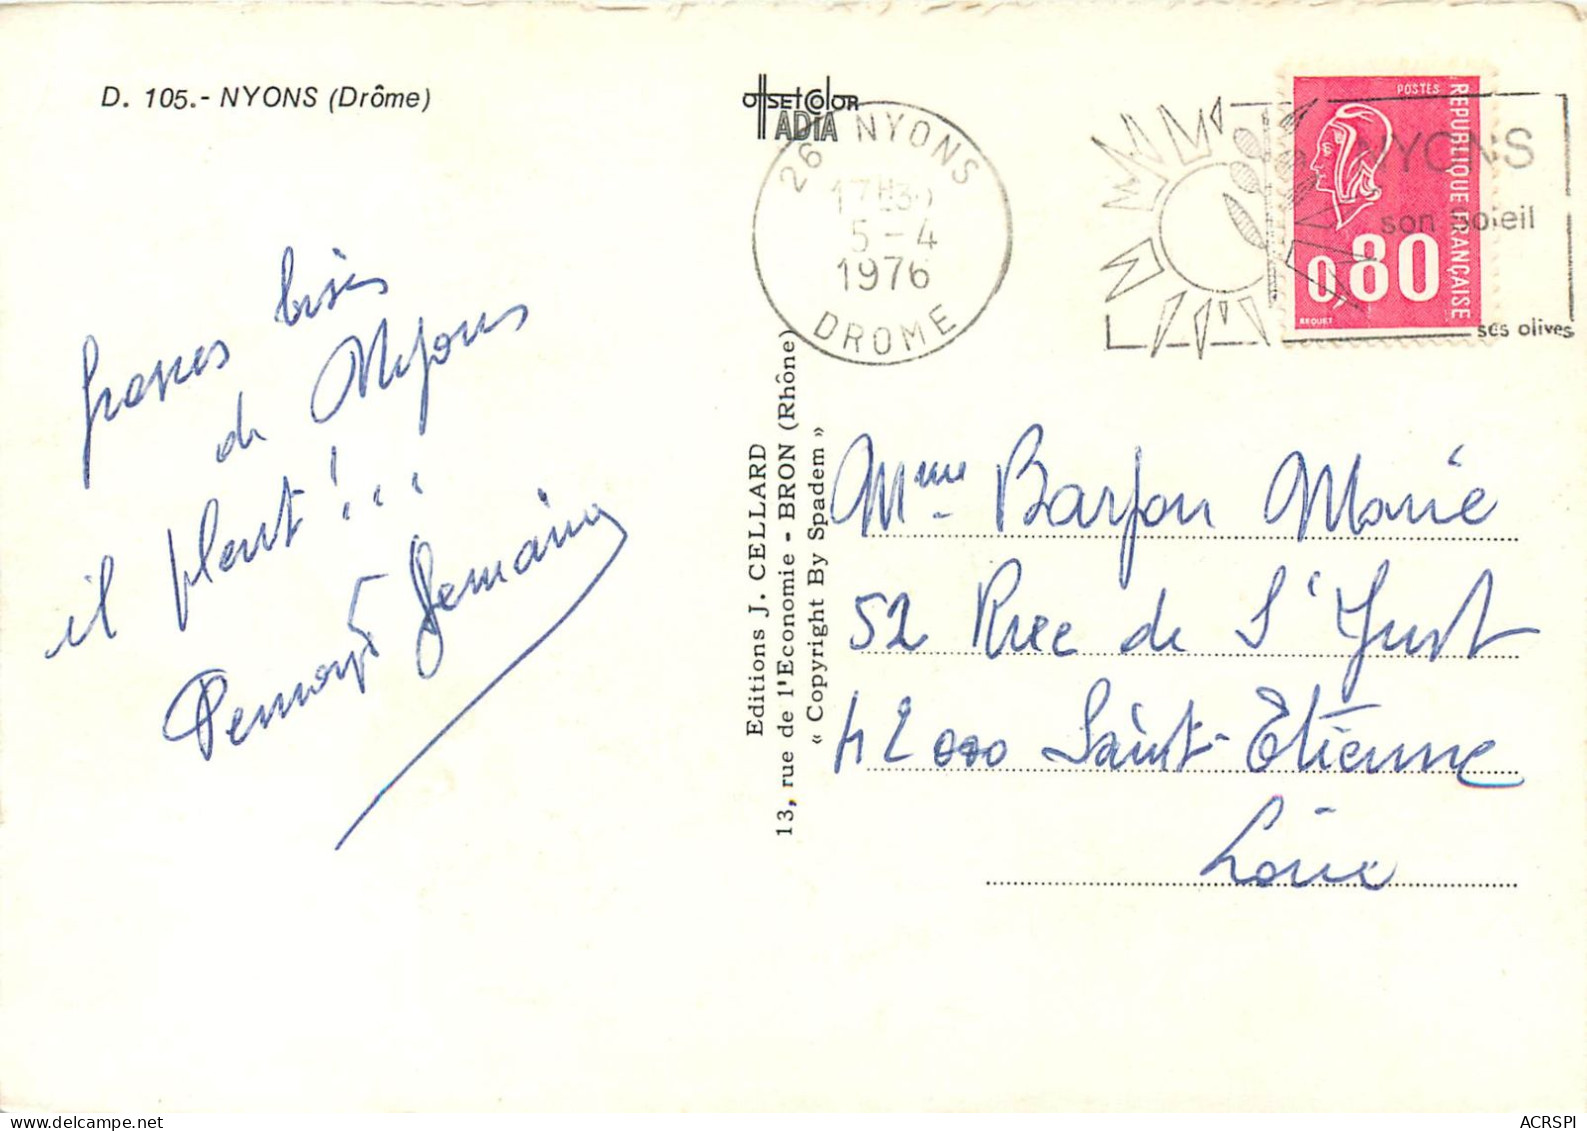 D. 105.- NYONS (Drôme)
OffSEtColoR
ADIA
26 NYONS
17H30
5-4
1976
DROME
POSTES
REPUBLIQUE FRANÇAISE
0,80
BEQUET
NYONS
son soleil
ses olives
grosses bises
de Nyons
il pleut!...
Germaine
Editions J. CELLARD
13, rue de l'Economie - BRON (Rhône)
« Copyright By Spadem »
Mme Barjon Marie
52 Rue de St Just
42000 Saint-Etienne
Loire
ACRSPI